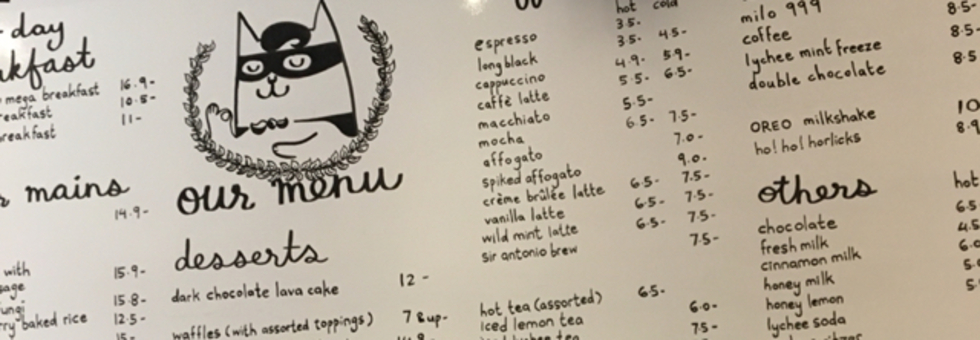 day
kfast
mega breakfast 16.9-
eakfast 10.5-
reakfast 11-
mains
14.9-
with 15.9-
sage
ungi 15.8-
ry baked rice 12.5-
15-
our menu
desserts
dark chocolate lava cake 12-
waffles (with assorted toppings) 7 & up-
hot cold
espresso 3.5-
long black 3.5- 4.5-
cappuccino 4.9- 5.9-
caffè latte 5.5- 6.5-
macchiato 5.5-
mocha 6.5- 7.5-
affogato 7.0-
spiked affogato 9.0-
crème brûlée latte 6.5- 7.5-
vanilla latte 6.5- 7.5-
wild mint latte 6.5- 7.5-
sir antonio brew 7.5-
hot tea (assorted) 6.5-
iced lemon tea 6.0-
7.5-
milo 999
coffee 8.5-
lychee mint freeze 8.5-
double chocolate 8.5
OREO milkshake 10
ho! ho! horlicks 8.9
others hot
chocolate 6.5
fresh milk 4.5
cinnamon milk 6.0
honey milk 5.0
honey lemon 5.
lychee soda